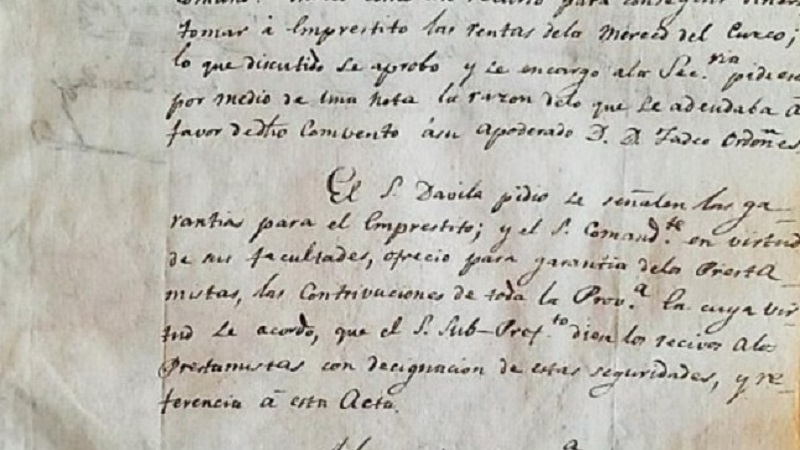 para conseguir
tomar á Emprestito las rentas dela Merced del Cuzco;
lo que discutido se aprobo y se encargo ala Sec.ria pidiese
por medio de una nota la razon delo que se adeudaba á
favor de dho Combento ásu apoderado D. D. Tadeo Ordoñes,
El S. Davila pidio se señalen las ga-
rantias para el Emprestito; y el S. Comand.te en virtud
de sus facultades, ofrecio para garantia delos Presta-
mistas, las Contrivuciones de toda la Prov.a En cuya vir-
tud se acordo, que el S. Sub-Pref.to diese los recivos alos
Prestamistas con decignacion de estas seguridades, y re-
ferencia á esta Acta.